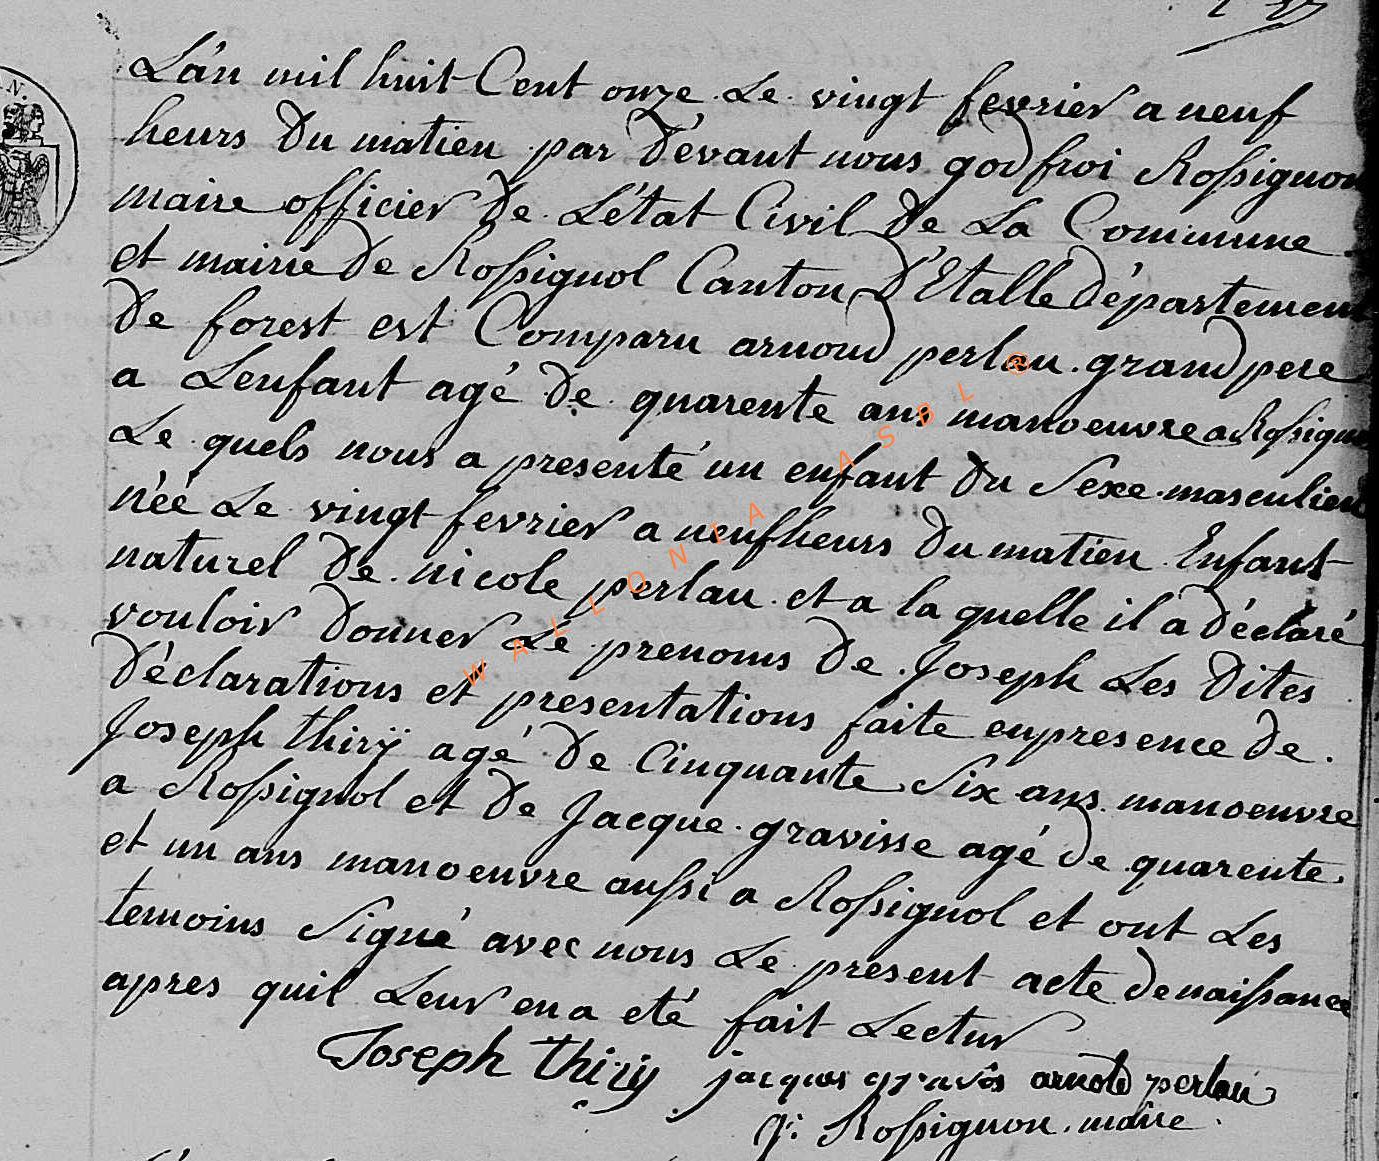 L'án mil huit Cent onze Le vingt fevrier a neuf
heurs Du matieu par D'évant nous godfroi Rossignon
maire officier De L'état Civil De La Commune
et mairie De Rossignol Canton D'Etalle département
De forest est Comparu arnoud perlau grand pere
a L'enfant agé De quarente ans manoeuvre a Rossignol
Le quels nous a presenté un enfant Du Sexe masculien
néé Le vingt fevrier a neufheurs Du matieu Enfant
naturel De nicole perlau et a la quelle il a déclaré
vouloir Donner Le prenoms De Joseph Les Dites
Déclarations et presentations faite enpresence De
Joseph thirÿ agé De Cinquante Six ans manoeuvre
a Rossignol et De Jacque gravisse agé De quarente
et un ans manoeuvre aussi a Rossignol et ont Les
temoins Signé avec nous Le present acte Denaissance
apres quil Leur en a eté fait Lectur
Joseph thiry jacques gravis arnold perlau
g: Rossignon maire
WALLONIA ASBL @
N.